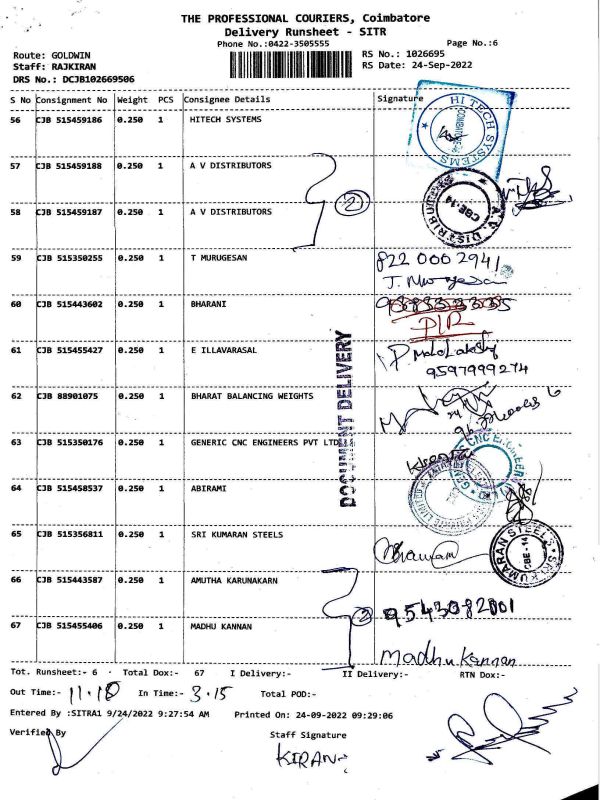 THE PROFESSIONAL COURIERS, Coimbatore
Delivery Runsheet - SITR
Phone No.:0422-3505555 Page No.:6
Route: GOLDWIN RS No.: 1026695
Staff: RAJKIRAN RS Date: 24-Sep-2022
DRS No.: DCJB102669506
S No Consignment No Weight PCS Consignee Details Signature
56 CJB 515459186 0.250 1 HITECH SYSTEMS
HI TECH SYSTEMS
57 CJB 515459188 0.250 1 A V DISTRIBUTORS
2
A.V. DISTRIBUTORS CBE-14
58 CJB 515459187 0.250 1 A V DISTRIBUTORS
59 CJB 515350255 0.250 1 T MURUGESAN 822 000 2941
60 CJB 515443602 0.250 1 BHARANI
61 CJB 515455427 0.250 1 E ILLAVARASAL
9597999274
DOCUMENT DELIVERY
62 CJB 88901075 0.250 1 BHARAT BALANCING WEIGHTS
63 CJB 515350176 0.250 1 GENERIC CNC ENGINEERS PVT LTD
64 CJB 515458537 0.250 1 ABIRAMI
65 CJB 515356811 0.250 1 SRI KUMARAN STEELS
SRI KUMARAN STEELS CBE-14
66 CJB 515443587 0.250 1 AMUTHA KARUNAKARN
2 9543082001
67 CJB 515455406 0.250 1 MADHU KANNAN
Madhu Kannan
Tot. Runsheet:- 6 Total Dox:- 67 I Delivery:- II Delivery:- RTN Dox:-
Out Time:- 11.10 In Time:- 3.15 Total POD:-
Entered By :SITRA1 9/24/2022 9:27:54 AM Printed On: 24-09-2022 09:29:06
Verified By Staff Signature
KIRAN